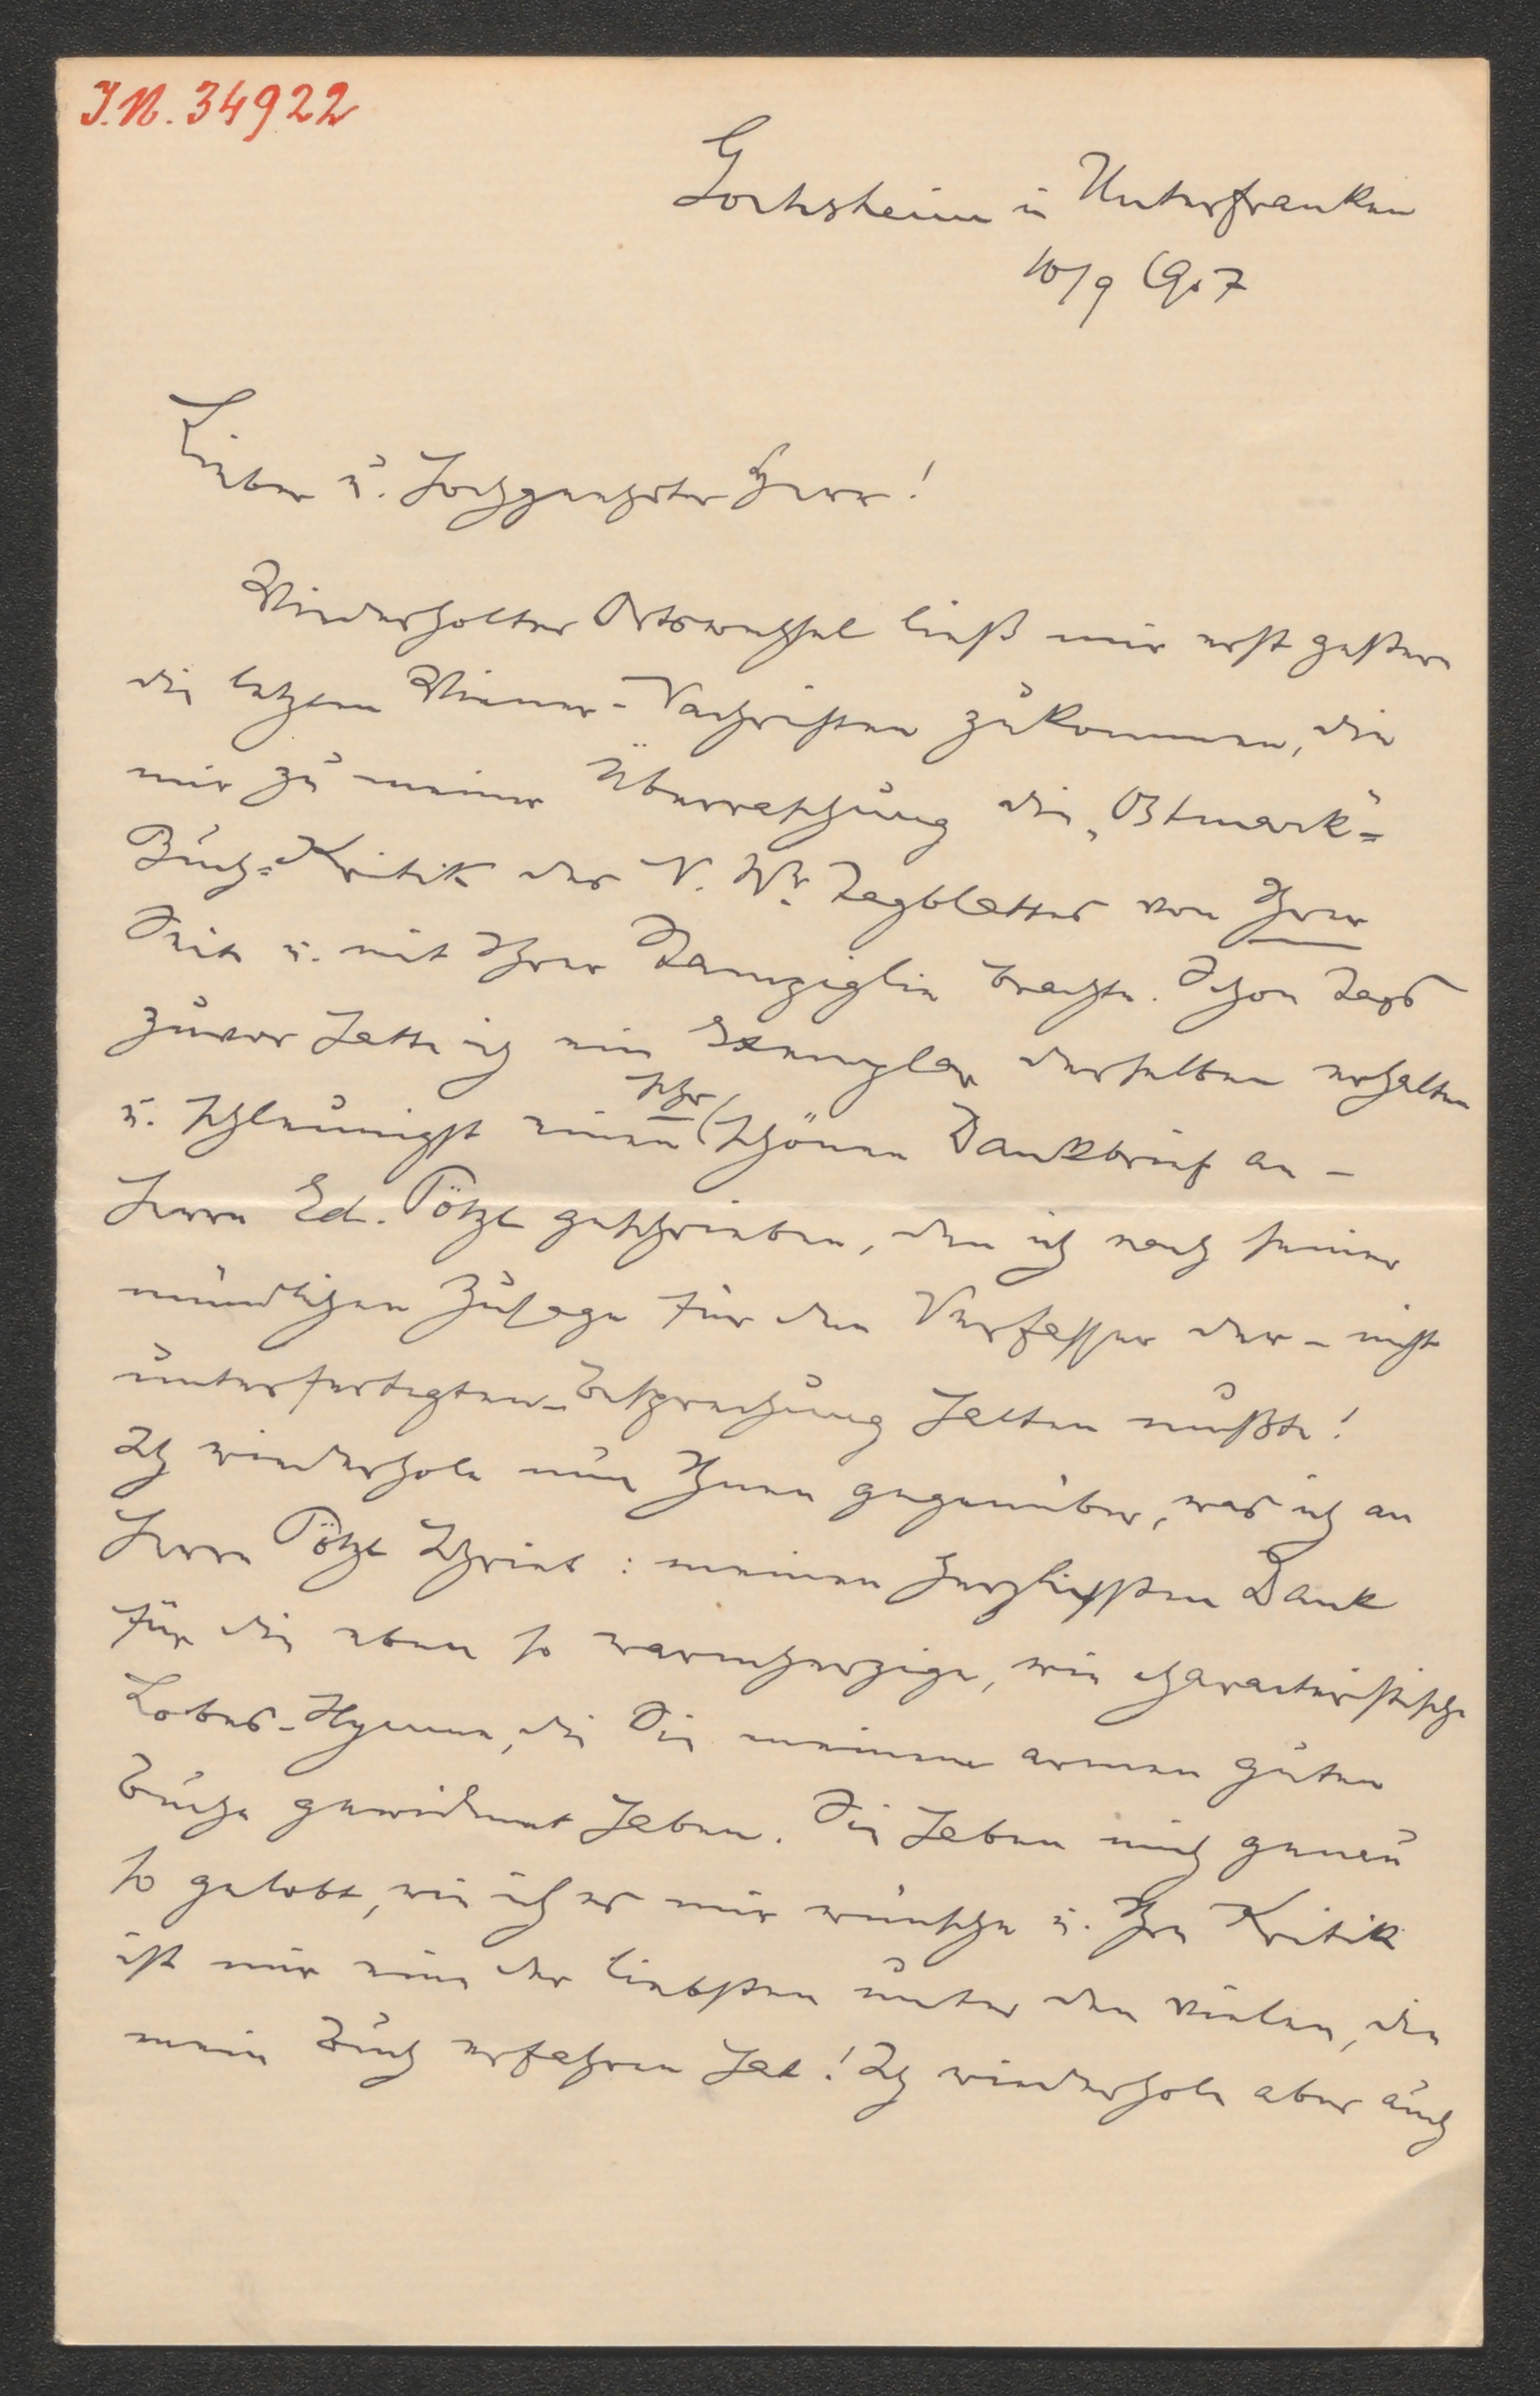 I.N. 34922
Gochsheim in Unterfranken
10/9 1907
Lieber u. hochgeehrter Herr!
Wiederholter Ortswechsel ließ mir erst gestern
die letzten Wiener-Nachrichten zukommen, die
mir zu meiner Überraschung die „Ostmark"-
Buch-Kritik des N. Wr. Tagblattes von Ihrer
Seite u. mit Ihrer brachte. Schon Tags
zuvor hatte ich ein Exemplar derselben erhalten
u. schleunigst einen sehr schönen Dankbrief an –
Herrn Ed. Pötzl geschrieben, den ich nach seiner
mündlichen Zusage für den Verfasser der – nicht
unterfertigten – Besprechung halten mußte!
Ich wiederhole nun Ihnen gegenüber, was ich an
Herrn Pötzl schrieb: meinen herzlichsten Dank
für die eben so warmherzige, wie characteristische
Lobes-Hymne, die Sie meinem armen guten
Buche gewidmet haben. Sie haben mich genau
so gelobt, wie ich es mir wünsche u. Ihre Kritik
ist mir eine der liebsten unter den vielen, die
mein Buch erfahren hat! Ich wiederhole aber auch